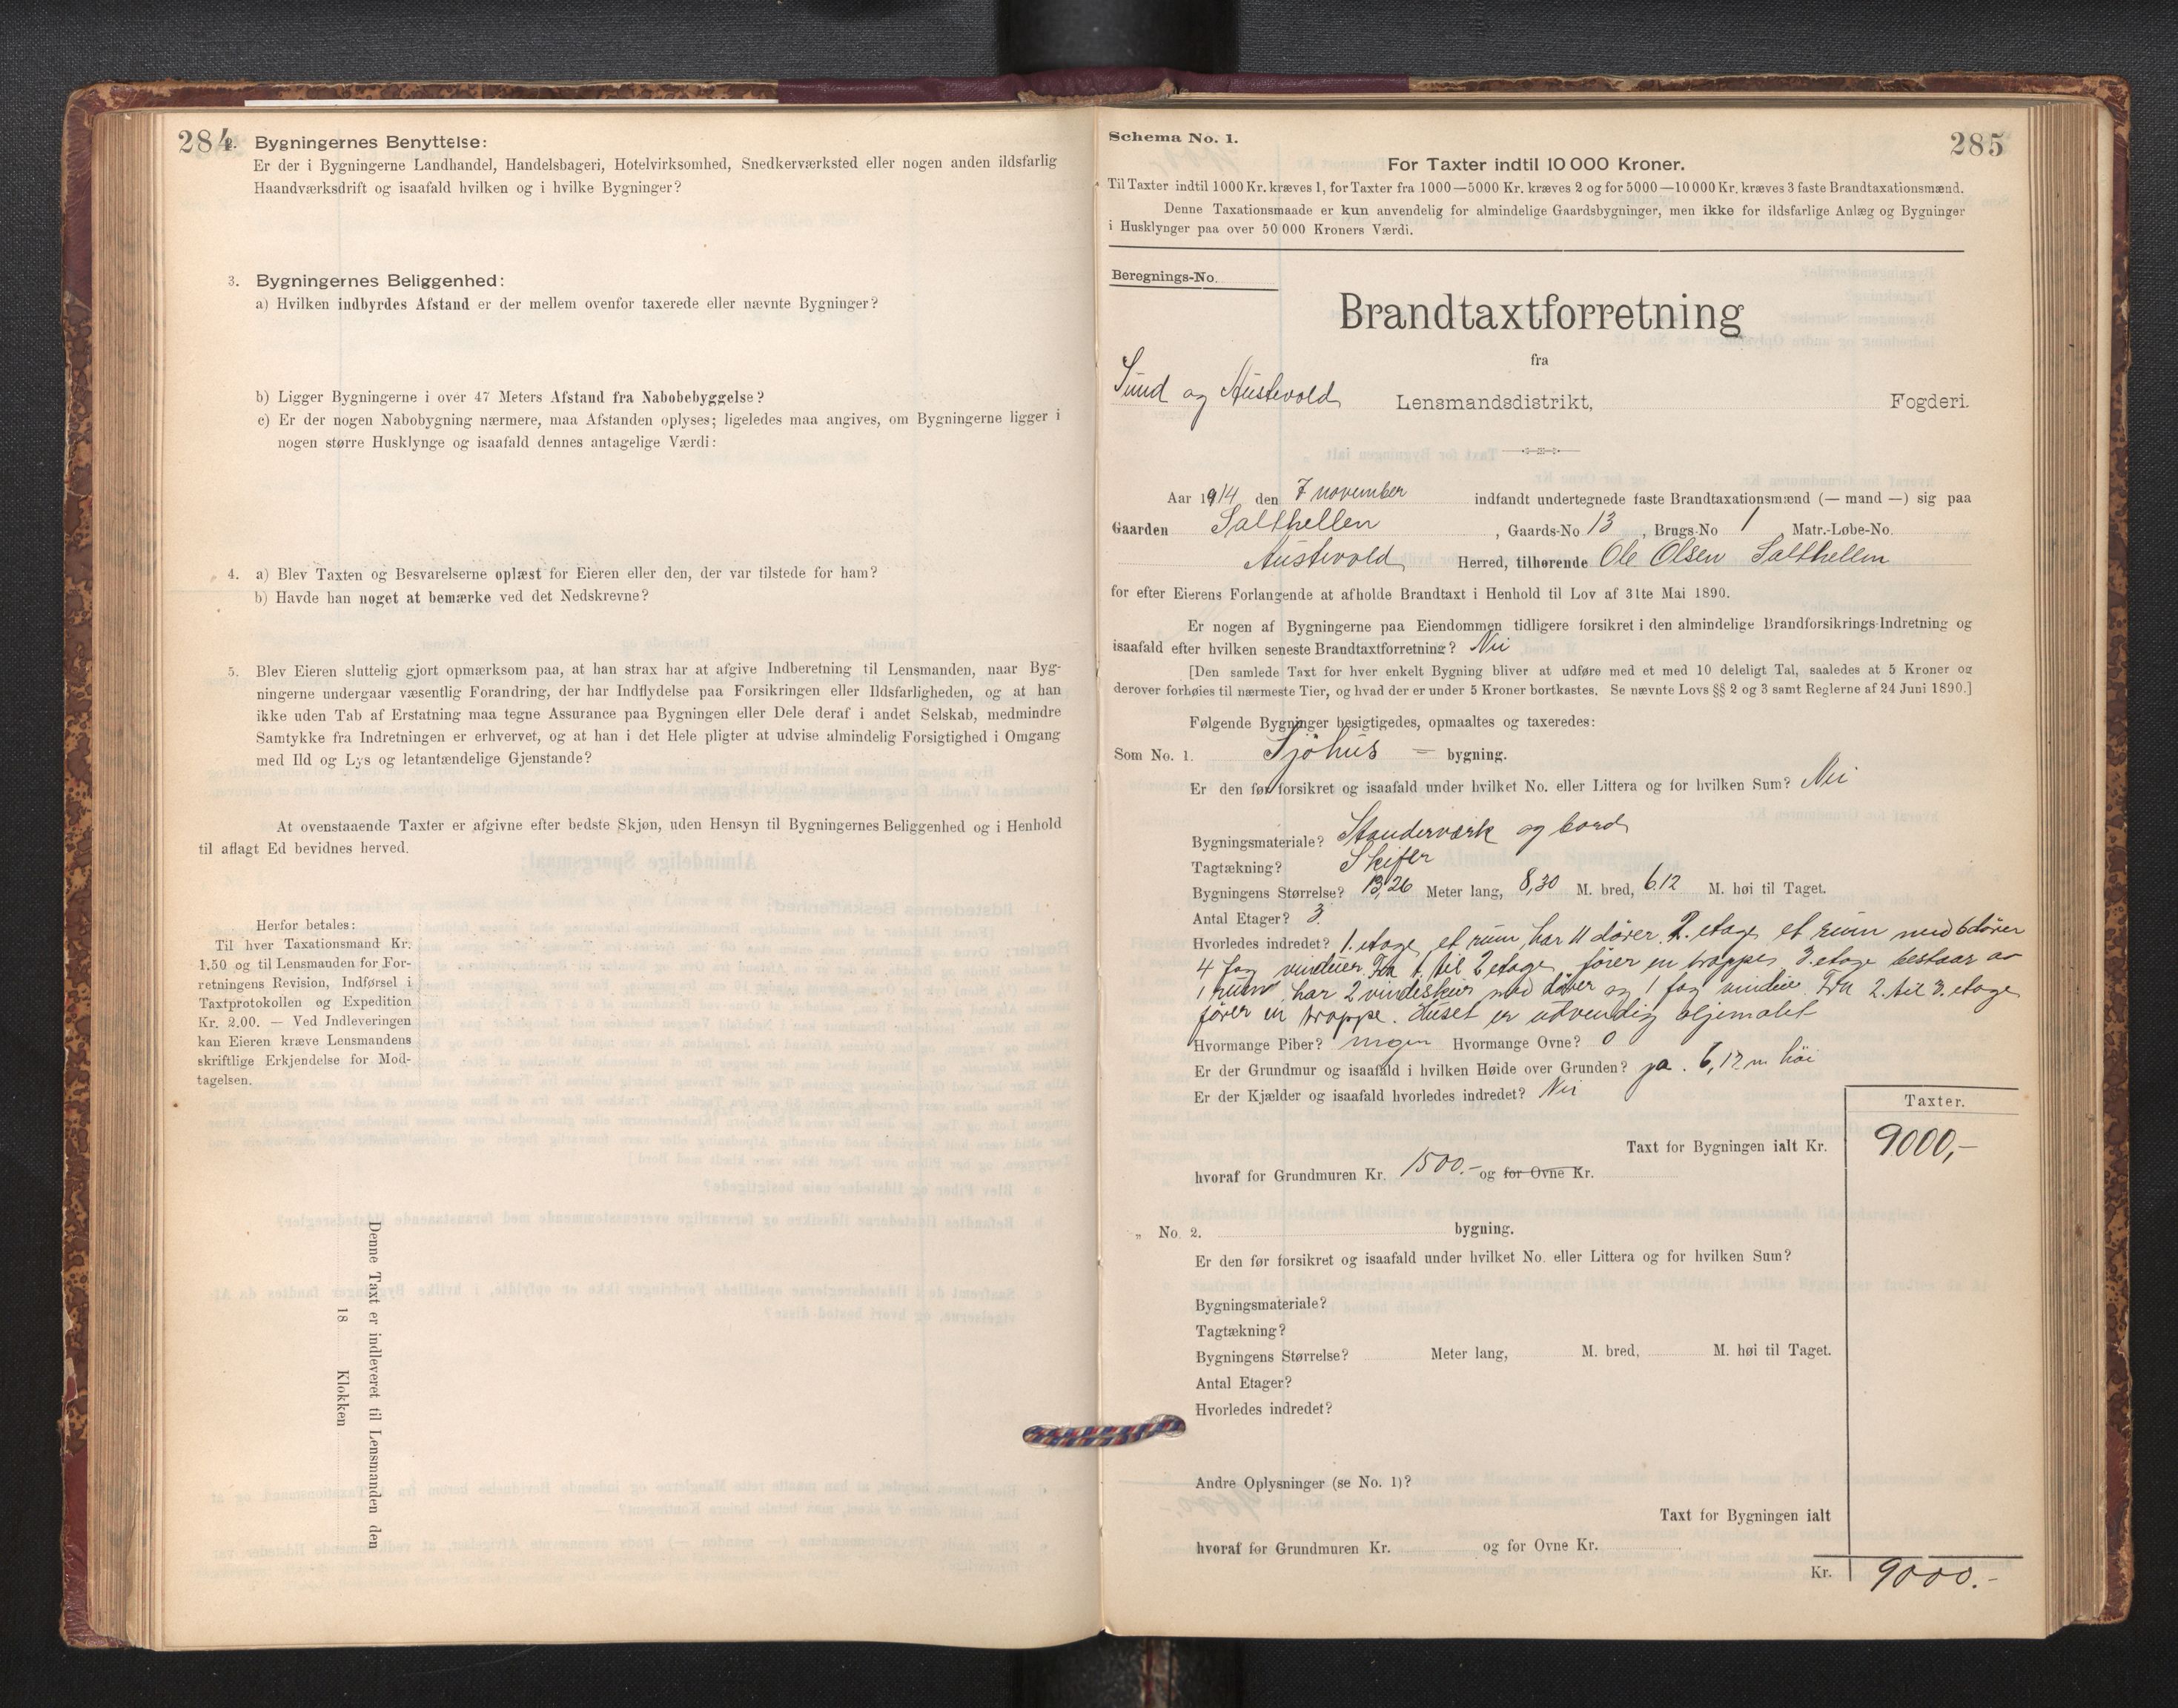 284
2. Bygningernes Benyttelse:
Er der i Bygningerne Landhandel, Handelsbageri, Hotelvirksomhed, Snedkerværksted eller nogen anden ildsfarlig
Haandværksdrift og isaafald hvilken og i hvilke Bygninger?
3. Bygningernes Beliggenhed:
a) Hvilken indbyrdes Afstand er der mellem ovenfor taxerede eller nævnte Bygninger?
b) Ligger Bygningerne i over 47 Meters Afstand fra Nabobebyggelse?
c) Er der nogen Nabobygning nærmere, maa Afstanden oplyses; ligeledes maa angives, om Bygningerne ligger i
nogen større Husklynge og isaafald dennes antagelige Værdi:
4. a) Blev Taxten og Besvarelserne oplæst for Eieren eller den, der var tilstede for ham?
b) Havde han noget at bemærke ved det Nedskrevne?
5. Blev Eieren sluttelig gjort opmærksom paa, at han strax har at afgive Indberetning til Lensmanden, naar Byg-
ningerne undergaar væsentlig Forandring, der har Indflydelse paa Forsikringen eller Ildsfarligheden, og at han
ikke uden Tab af Erstatning maa tegne Assurance paa Bygningen eller Dele deraf i andet Selskab, medmindre
Samtykke fra Indretningen er erhvervet, og at han i det Hele pligter at udvise almindelig Forsigtighed i Omgang
med Ild og Lys og letantændelige Gjenstande?
At ovenstaaende Taxter er afgivne efter bedste Skjøn, uden Hensyn til Bygningernes Beliggenhed og i Henhold
til aflagt Ed bevidnes herved.
Herfor betales:
Til hver Taxationsmand Kr.
1.50 og til Lensmanden for For-
retningens Revision, Indførsel i
Taxtprotokollen og Expedition
Kr. 2.00. — Ved Indleveringen
kan Eieren kræve Lensmandens
skriftlige Erkjendelse for Mod-
tagelsen.
Denne Taxt er indleveret til Lensmanden den
18 Klokken
Schema No. 1.
285
For Taxter indtil 10 000 Kroner.
Til Taxter indtil 1000 Kr. kræves 1, for Taxter fra 1000—5000 Kr. kræves 2 og for 5000—10000 Kr. kræves 3 faste Brandtaxationsmænd.
Denne Taxationsmaade er kun anvendelig for almindelige Gaardsbygninger, men ikke for ildsfarlige Anlæg og Bygninger
i Husklynger paa over 50 000 Kroners Værdi.
Beregnings-No.
Brandtaxtforretning
fra
Sund og Austevold Lensmandsdistrikt, Fogderi.
Aar 1914 den 7 november indfandt undertegnede faste Brandtaxationsmænd (— mand —) sig paa
Gaarden Salthellen, Gaards-No 13, Brugs-No 1 Matr.-Løbe-No.
Austevold Herred, tilhørende Ole Olsen Salthellen
for efter Eierens Forlangende at afholde Brandtaxt i Henhold til Lov af 31te Mai 1890.
Er nogen af Bygningerne paa Eiendommen tidligere forsikret i den almindelige Brandforsikrings-Indretning og
isaafald efter hvilken seneste Brandtaxtforretning? Nei
[Den samlede Taxt for hver enkelt Bygning bliver at udføre med et med 10 deleligt Tal, saaledes at 5 Kroner og
derover forhøies til nærmeste Tier, og hvad der er under 5 Kroner bortkastes. Se nævnte Lovs §§ 2 og 3 samt Reglerne af 24 Juni 1890.]
Følgende Bygninger besigtigedes, opmaaltes og taxeredes:
Som No. 1. Sjøhus = bygning.
Er den før forsikret og isaafald under hvilket No. eller Littera og for hvilken Sum? Nei
Bygningsmateriale? Standerværk og bord
Tagtækning? Skifer
Bygningens Størrelse? 13,26 Meter lang, 8,30 M. bred, 6.12 M. høi til Taget.
Antal Etager? 3.
Hvorledes indredet? 1. etage et rum, har 11 dører. 2. etage et rum med 6 dører
4 fag vinduer. Fra 1. til 2 etage fører en trappe, 3. etage bestaar av
1 rum, har 2 vindeskur med dører og 1 fag vindue. Fra 2. til 3. etage
fører en trappe. Huset er utvendig oljemalet
Hvormange Piber? ingen Hvormange Ovne? 0
Er der Grundmur og isaafald i hvilken Høide over Grunden? ja. 6,12 m høi
Er der Kjælder og isaafald hvorledes indredet? Nei
Taxter.
Taxt for Bygningen ialt Kr. 9000,-
hvoraf for Grundmuren Kr. 1500.- og for Ovne Kr.
„ No. 2. bygning.
Er den før forsikret og isaafald under hvilket No. eller Littera og for hvilken Sum?
Bygningsmateriale?
Tagtækning?
Bygningens Størrelse? Meter lang, M. bred, M. høi til Taget.
Antal Etager?
Hvorledes indredet?
Andre Oplysninger (se No. 1)?
Taxt for Bygningen ialt
hvoraf for Grundmuren Kr. og for Ovne Kr.
Kr. 9000.-